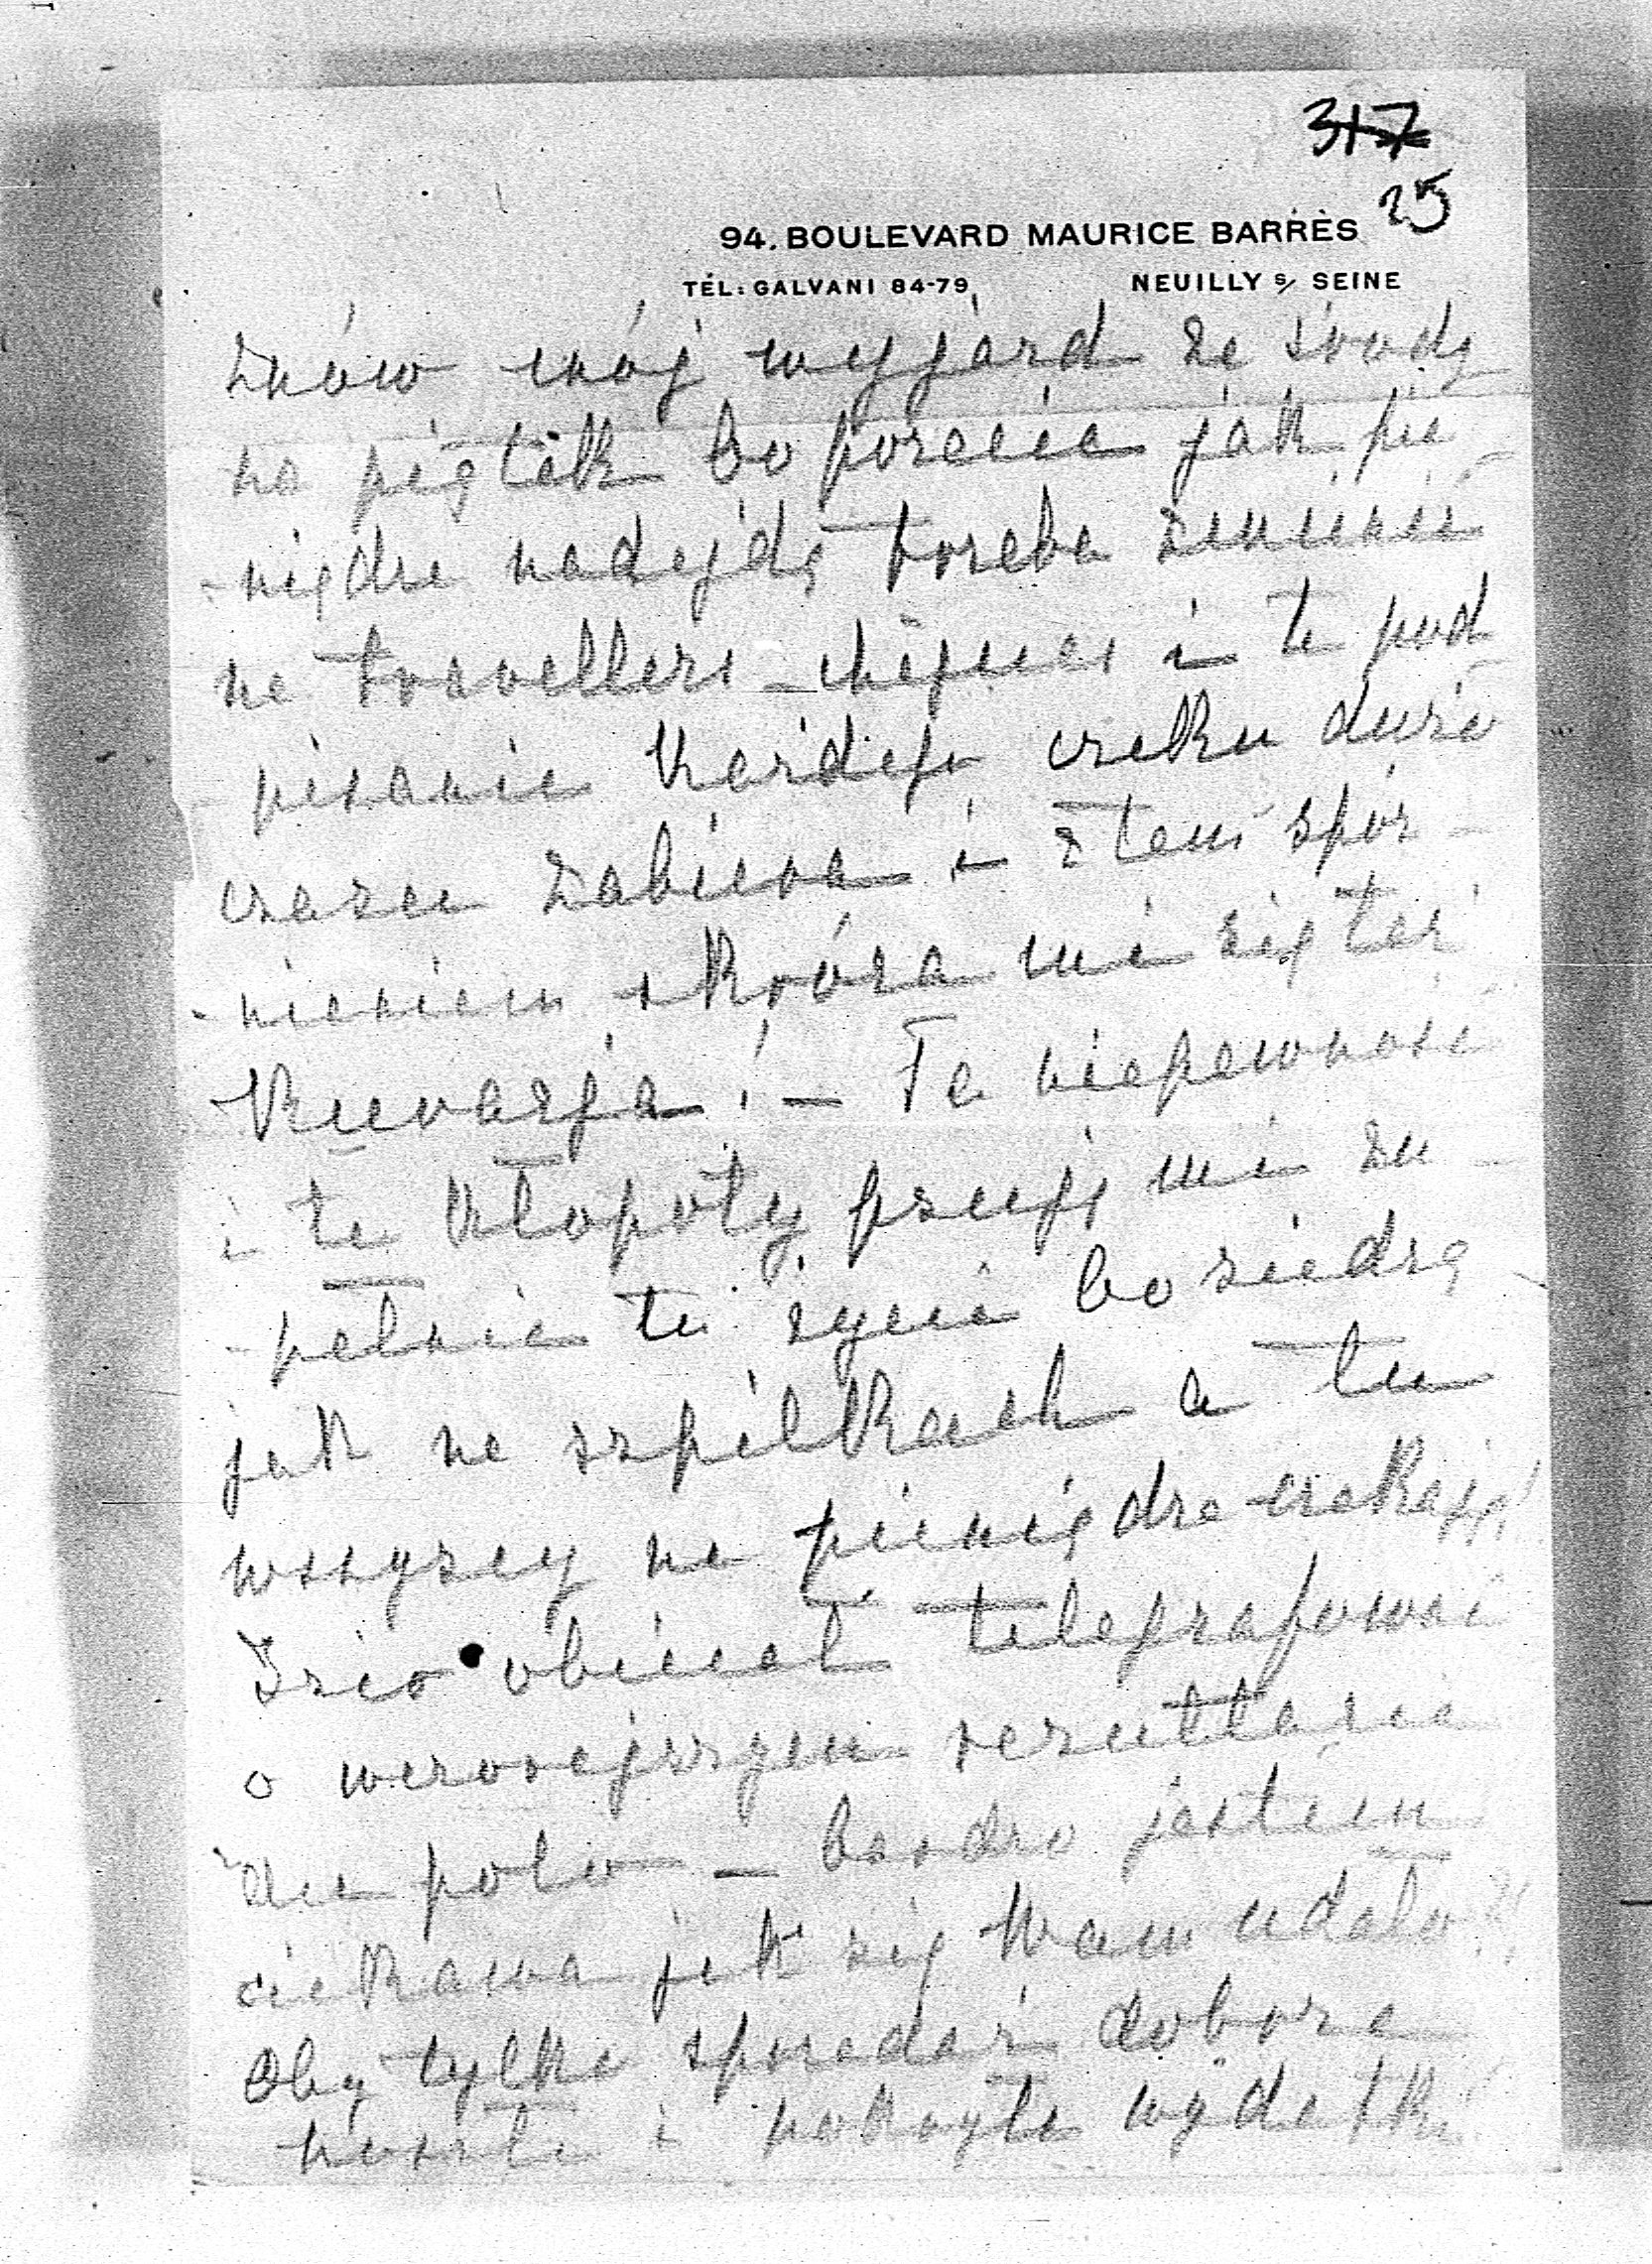 317
25
94. BOULEVARD MAURICE BARRÈS
TÉL: GALVANI 84-79 NEUILLY S/ SEINE
znów mój wyjazd ze środy
na piątek bo przecie jak pie
-niądze nadejdą trzeba zmienić
na travellers-chèques i to pod
-pisanie każdego czeku dużo
czasu zabiera i z tem spóź-
-nieniem skóra mi się też
Kurczyła! – Ta niepewność
i te kłopoty psują mi zu-
-pełnie to życie bo siedzę
jak na szpilkach a tu
wszyscy na pieniądze czekają!
obiecał telegrafować
o wczorajszym rezultacie
du polo – bardzo jestem
ciekawa jak się Wam udało?!
Oby tylko sprzedaż dobrze
poszła i pokryła wydatki